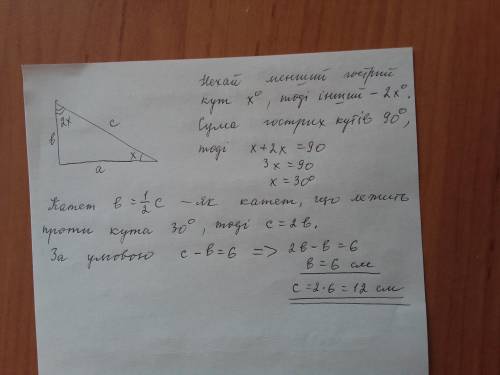 Нехай менший гострий
кут x°, тоді інший – 2x°.
Сума гострих кутів 90°,
тоді x+2x=90
3x=90
x=30°
2x
c
в
x
a
Катет в=1/2 c – як катет, що лежить
проти кута 30°, тоді c=2в.
За умовою c-в=6 => 2в-в=6
в=6 см
c=2·6=12 см